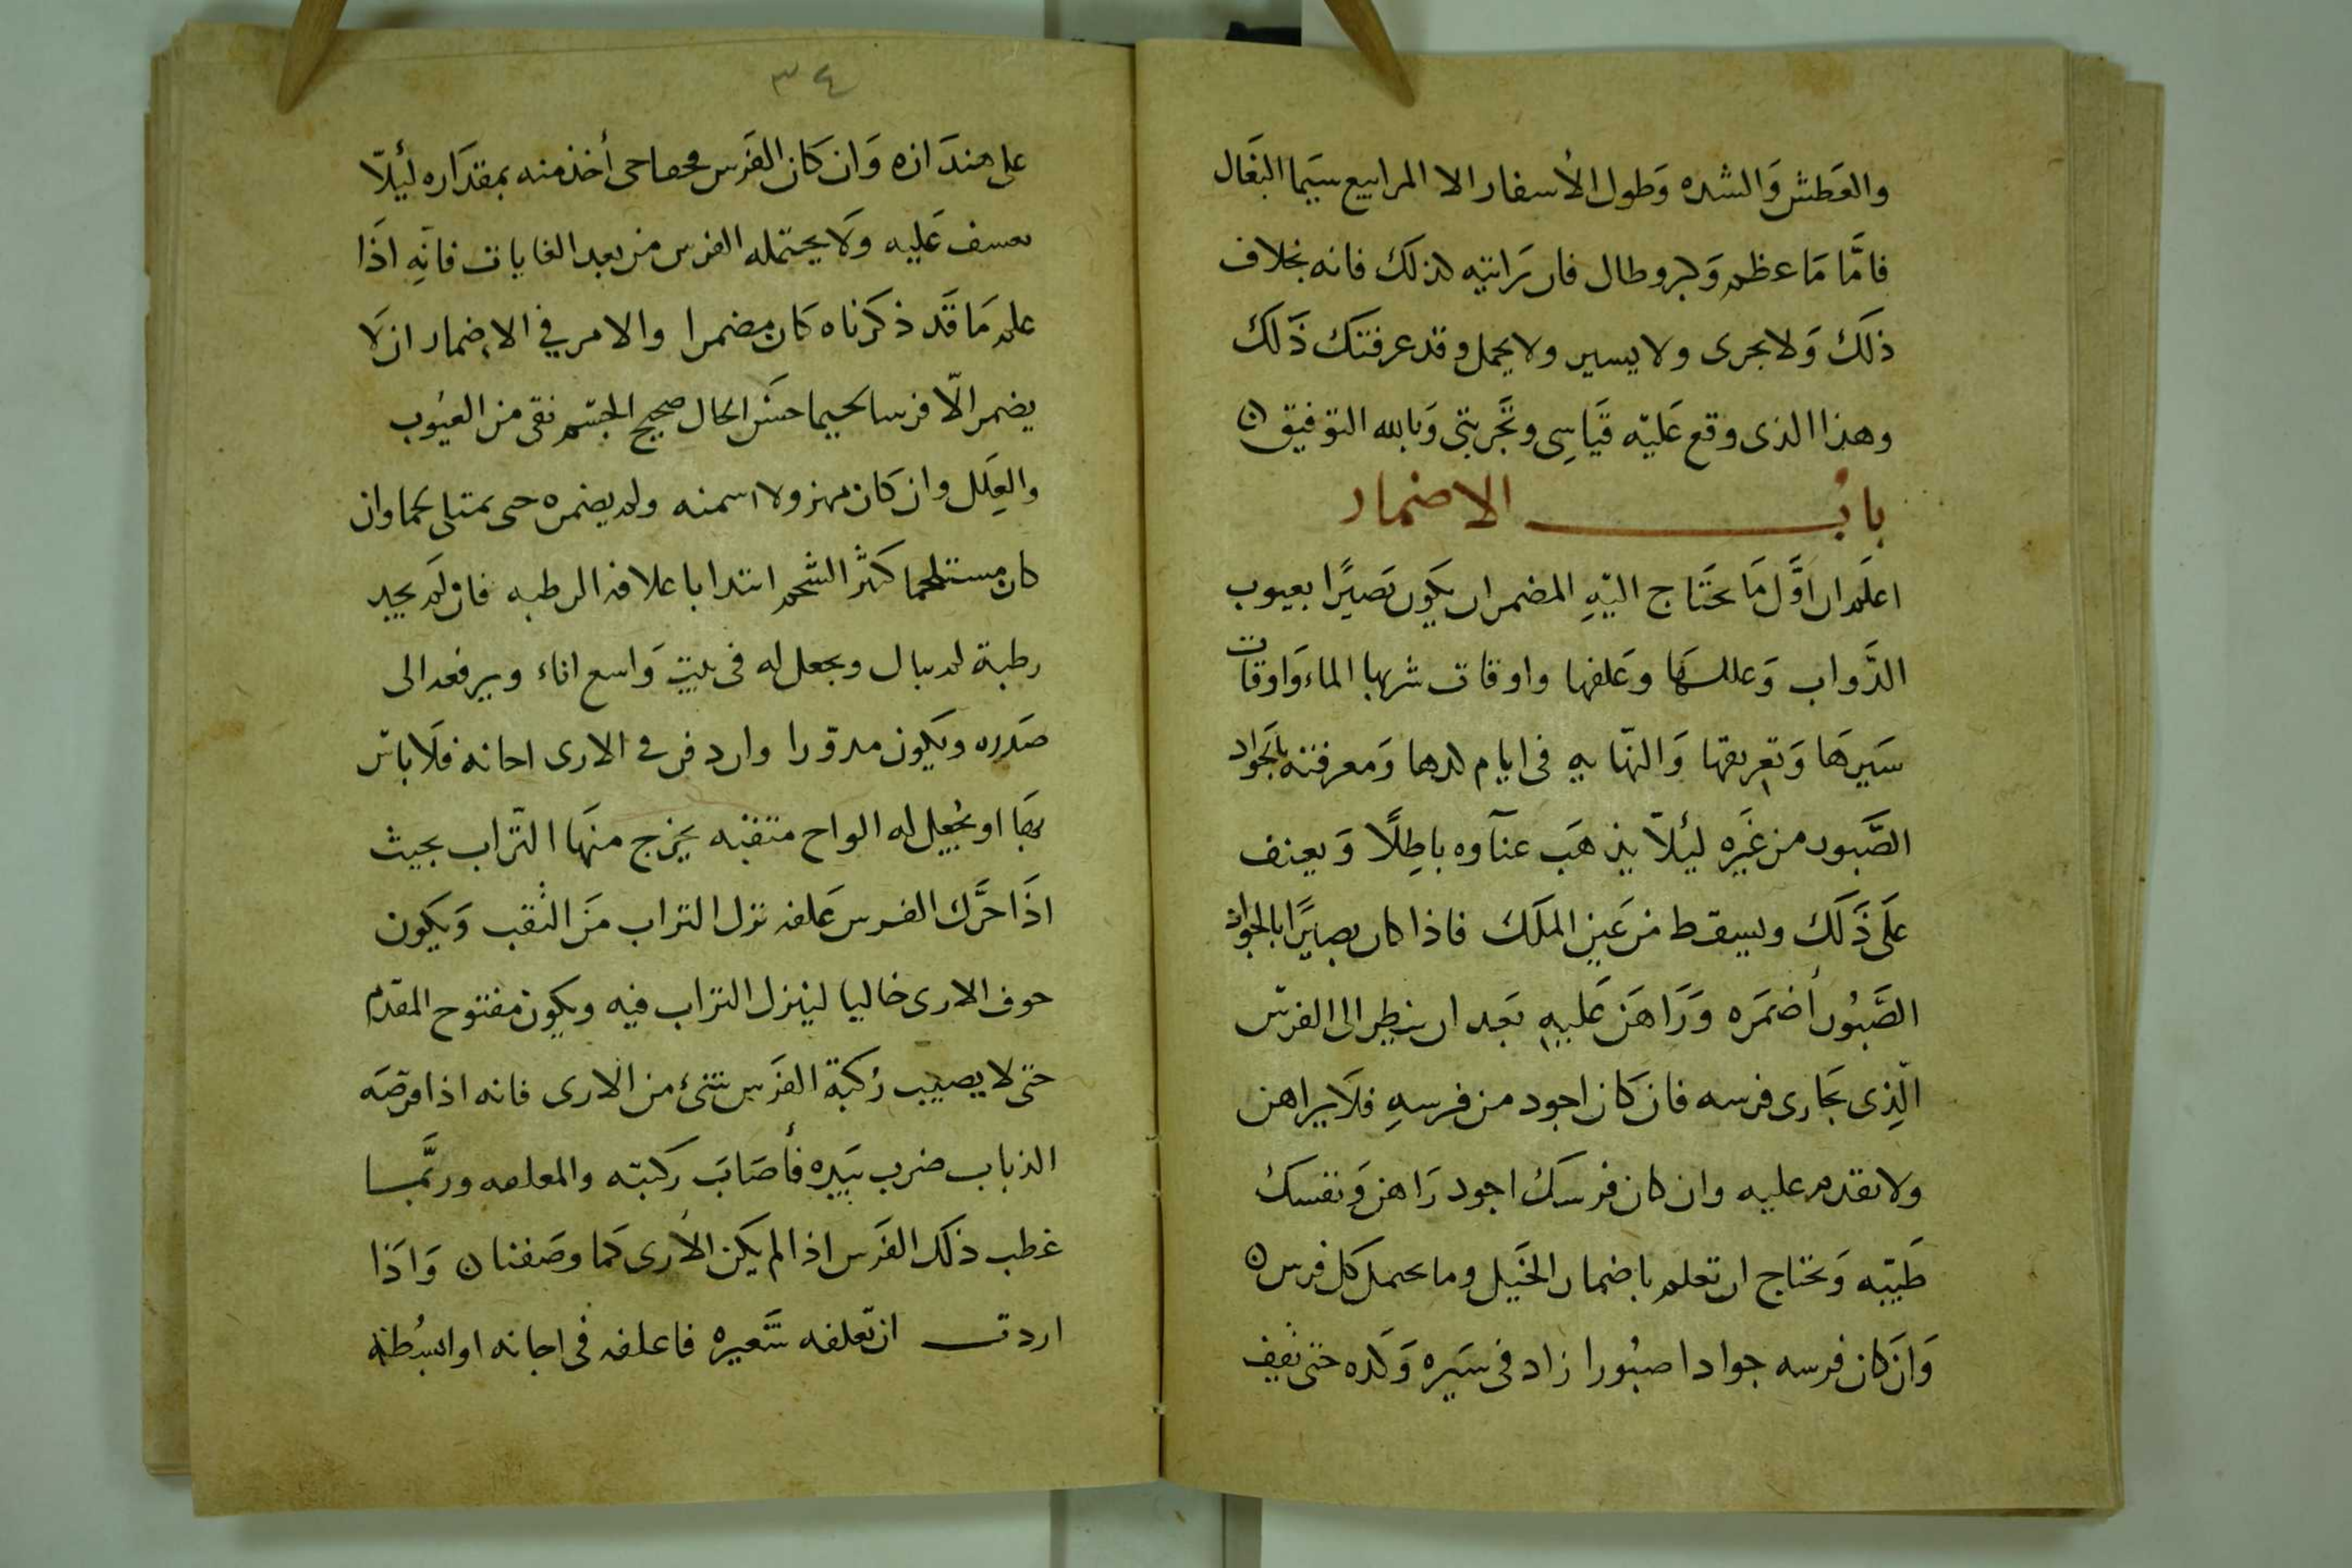 والعَطش وَالشده وَطول الأسفار الا المرابيع سيَما البغَال
فامَّا مَا عظم وَكبر وطال فان رَايته كذلكَ فانه بخلاف
ذلكَ وَلا يجرى ولا يسير ولا يحمل وقد عرفتكَ ذَلكَ
وهذا الذى وقع عَليْه قيَاسِى وتَجربتى وَبالله التوفيق ن
بابُ الاضمار
اعلَم ان اوَّل مَا يحتَاج اليْهِ المضمر ان يكَون بَصيرًا بعيوب
الدَّواب وَعللهَا وعَلفها واوقات شربها الماء وَاوقات
سَيرهَا وَتعريقها وَ فى ايام كدها وَمعرفته بالجَواد
الصَّبور من غَيره ليئلاّ يذهَب عنآوه باطِلًا وَيعنف
علَى ذَلكَ ويسقط من عَين الملَك فاذا كان بصيرًا بالجواد
الصَّبُور أضمَره وَرَاهَن عَليهِ بَعد ان ينظر الى الفرسْ
الّذِى يجَارى فرسه فان كَان اجود من فرسهِ فلَا يراهن
ولا يقدم عليه وان كان فرسكَ اجود رَاهن وَنفسكَ
طَيبّه وَتحتاج ان تعلم باضمار الخيَل وما يحمل كل فرس ن
وَانَ كان فرسه جوادا صبُورا زاد فى سَيره وَكده حتى تقف
٣٤
على وَان كَان الفرَس أخذ منه بمقدَاره ليئلاّ
يعسف عَليه وَلا يحتمله الفرس من بعد الغايات فانّهِ اذَا
علم مَا قَد ذكرَناه كَان مضمرا والامر في الاضمار ان لَا
يضمر الاّ فرسا لحيما حسَن الحال صحيح الجسْم نقى من العيُوب
والعِلَل وان كَان مهزولا اسمنه ولم يضمره حتى يمتلى لحما وان
كان مستلحما كثَر الشحم ابتدا باعلافه الرطبه فان لَم يجد
رطبة لم يبال ويجعل له فى بيت وَاسع اناء ويرفعه الى
صَدره ويكَون مدوّرا وان فى الارى اجانه فلَا باس
بهَا او يجُعِل له الواح مثقبه يخرج منهَا التّراب بحيث
اذَا حرَّك الفرس عَلفه نزل التراب مَن الثقب وَيكون
جوف الارى خاليا لينزل التراب فيه ويكون مفتوح المقدّم
حتى لا يصيب رُكبة الفرَس شئ من الارى فانه اذا قرصَه
الذباب ضرب بيَده فأصَابَ ركبته ورُبَّما
عطب ذلكَ الفرَس اذا لم يكَن الأرى كمَا وصَفنا ن وَاذَا
اردت ان تعلفه شَعيره فاعلفه فى اجانه او ابسُطه